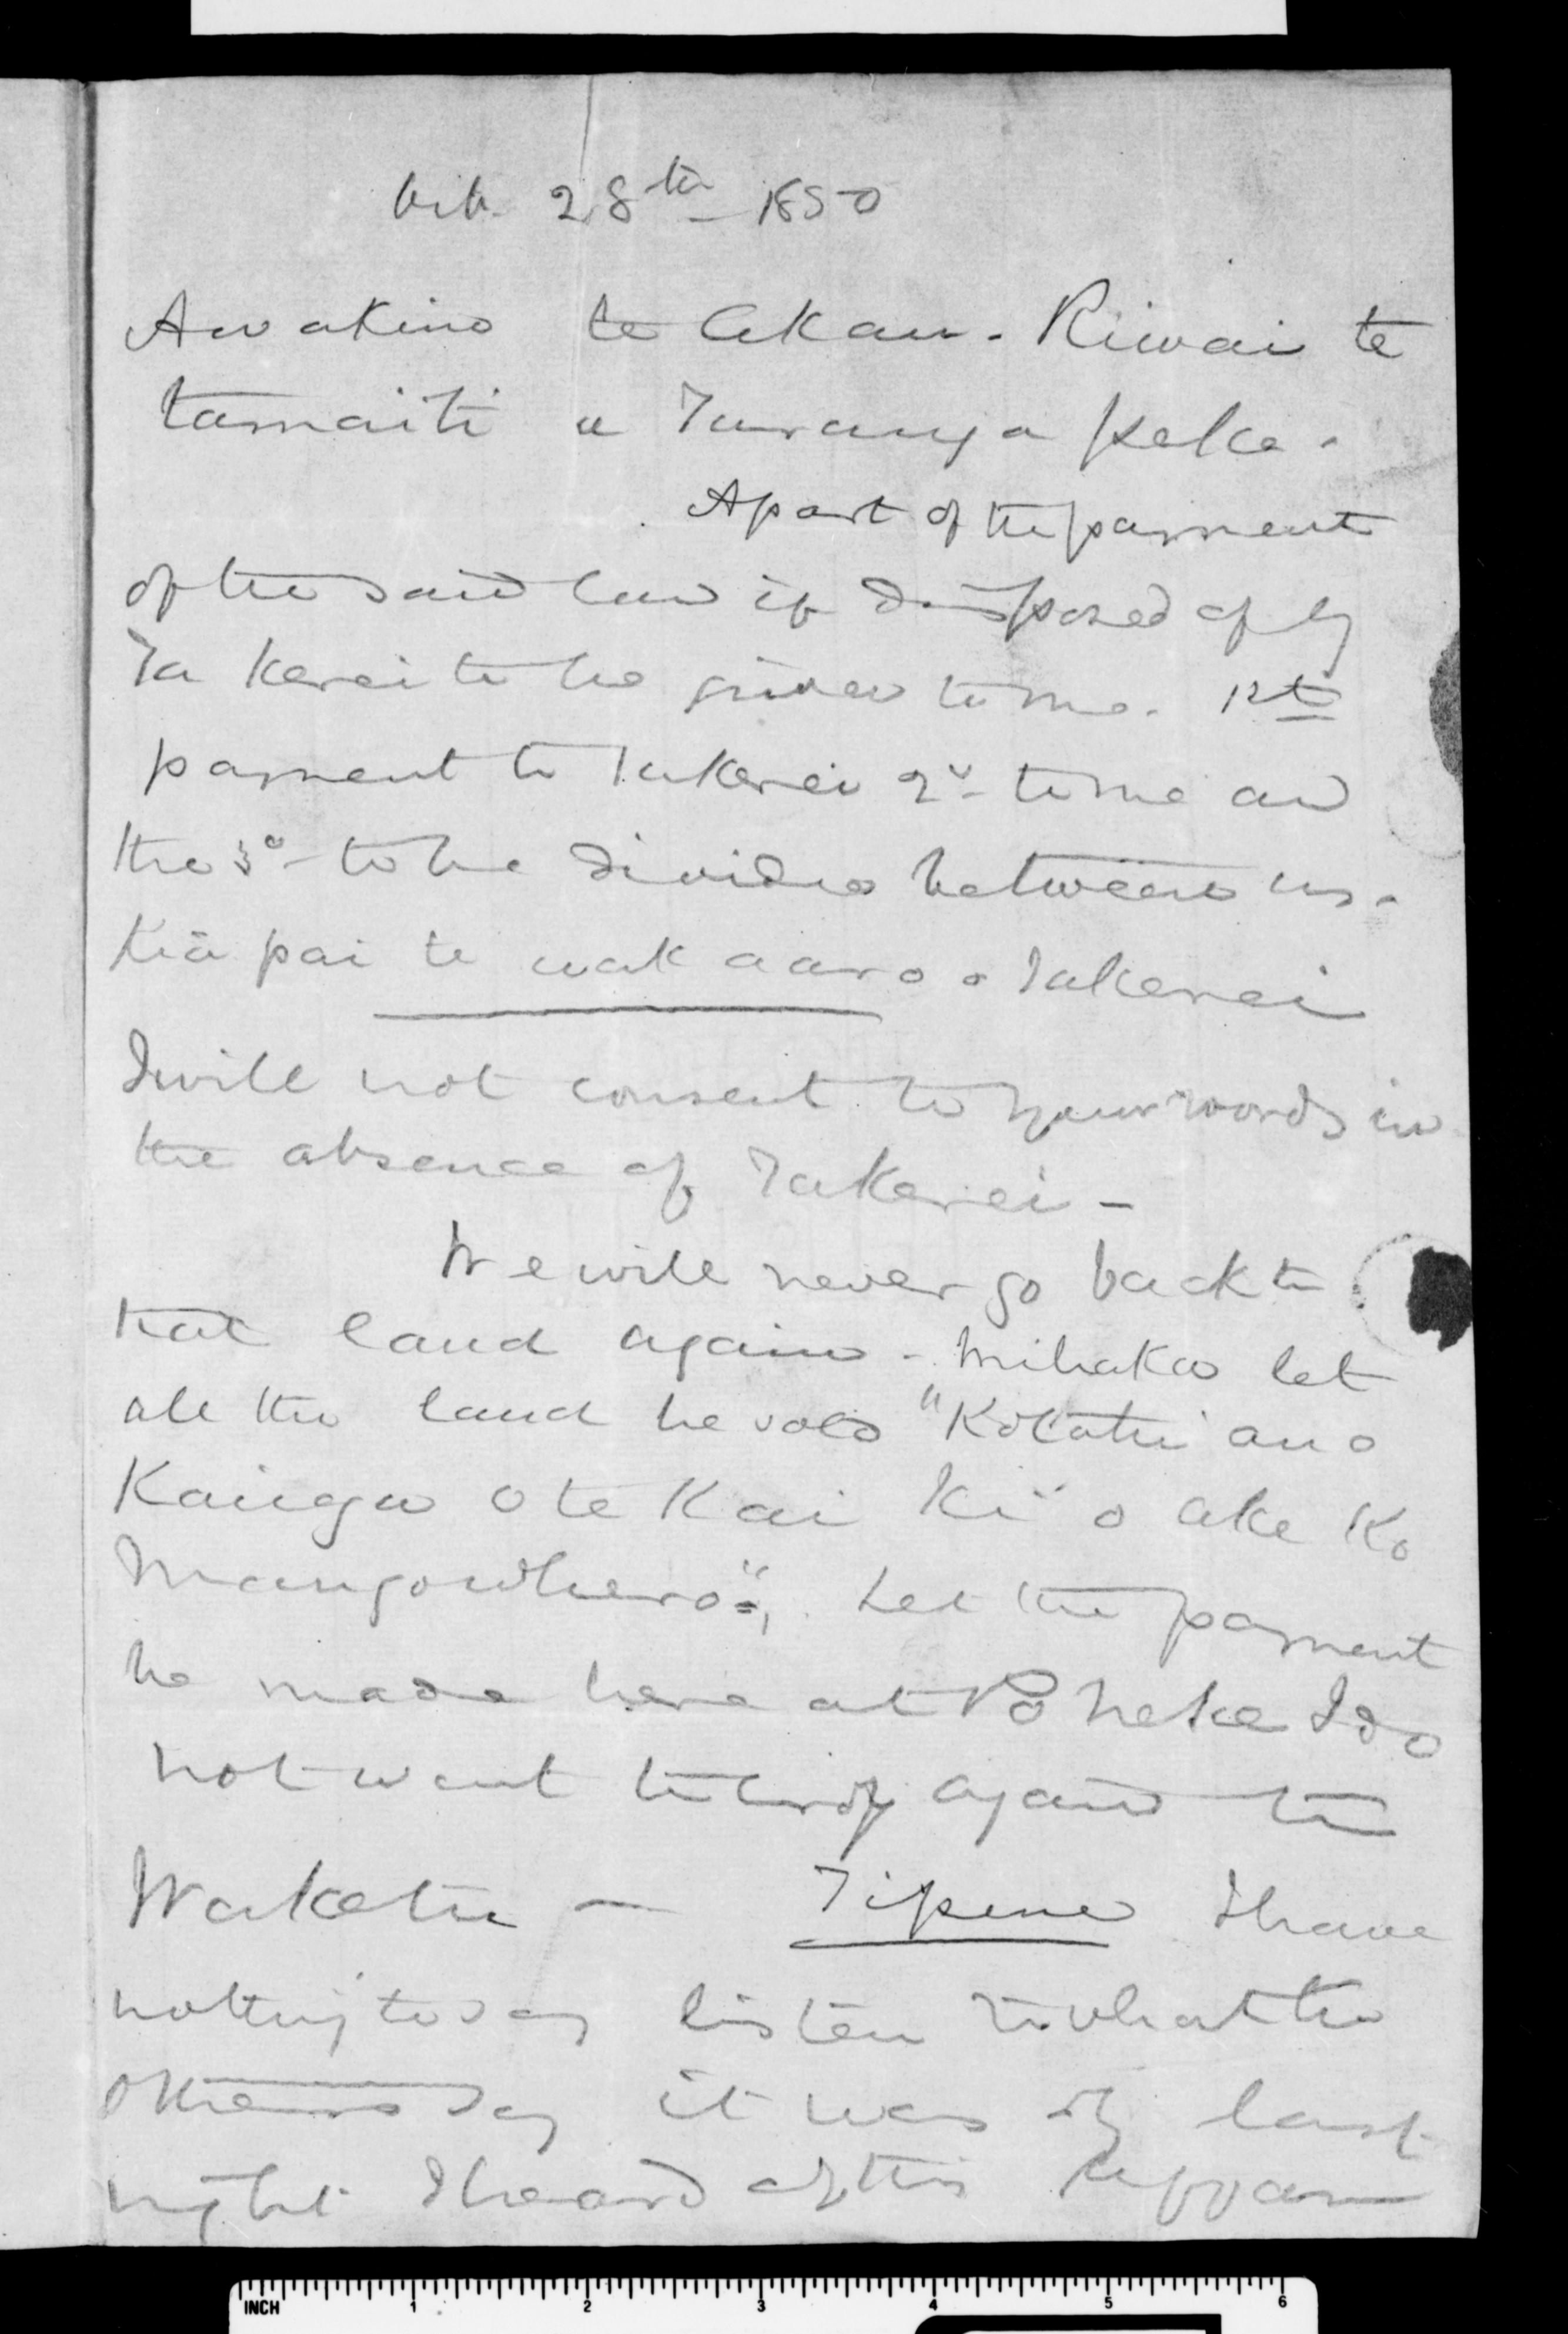 28th 1850
Awakino te Akau. Riwai te
tamaiti a Turanga peke.
A part of the payment
of the said land if disposed of by
Ta Kerei to be given to me. 1st
payment to Takerei 2d to me and
the 3d to be divided between us.
Kia pai te wakaaro. Takerei
I will not consent to your words in
the absence of Takerei -
We will never go back to
that land again - let
all the land be sold "Kotahi ano
Kainga o te Kai Ki o ake Ko
Mangowhero", Let the payment
be made here at Po neke I do
not want to again to
Waketu - Tipene I have
nothing to say listen to what the
others say it was only last
night I heard of this affair
INCH 1 2 3 4 5 6